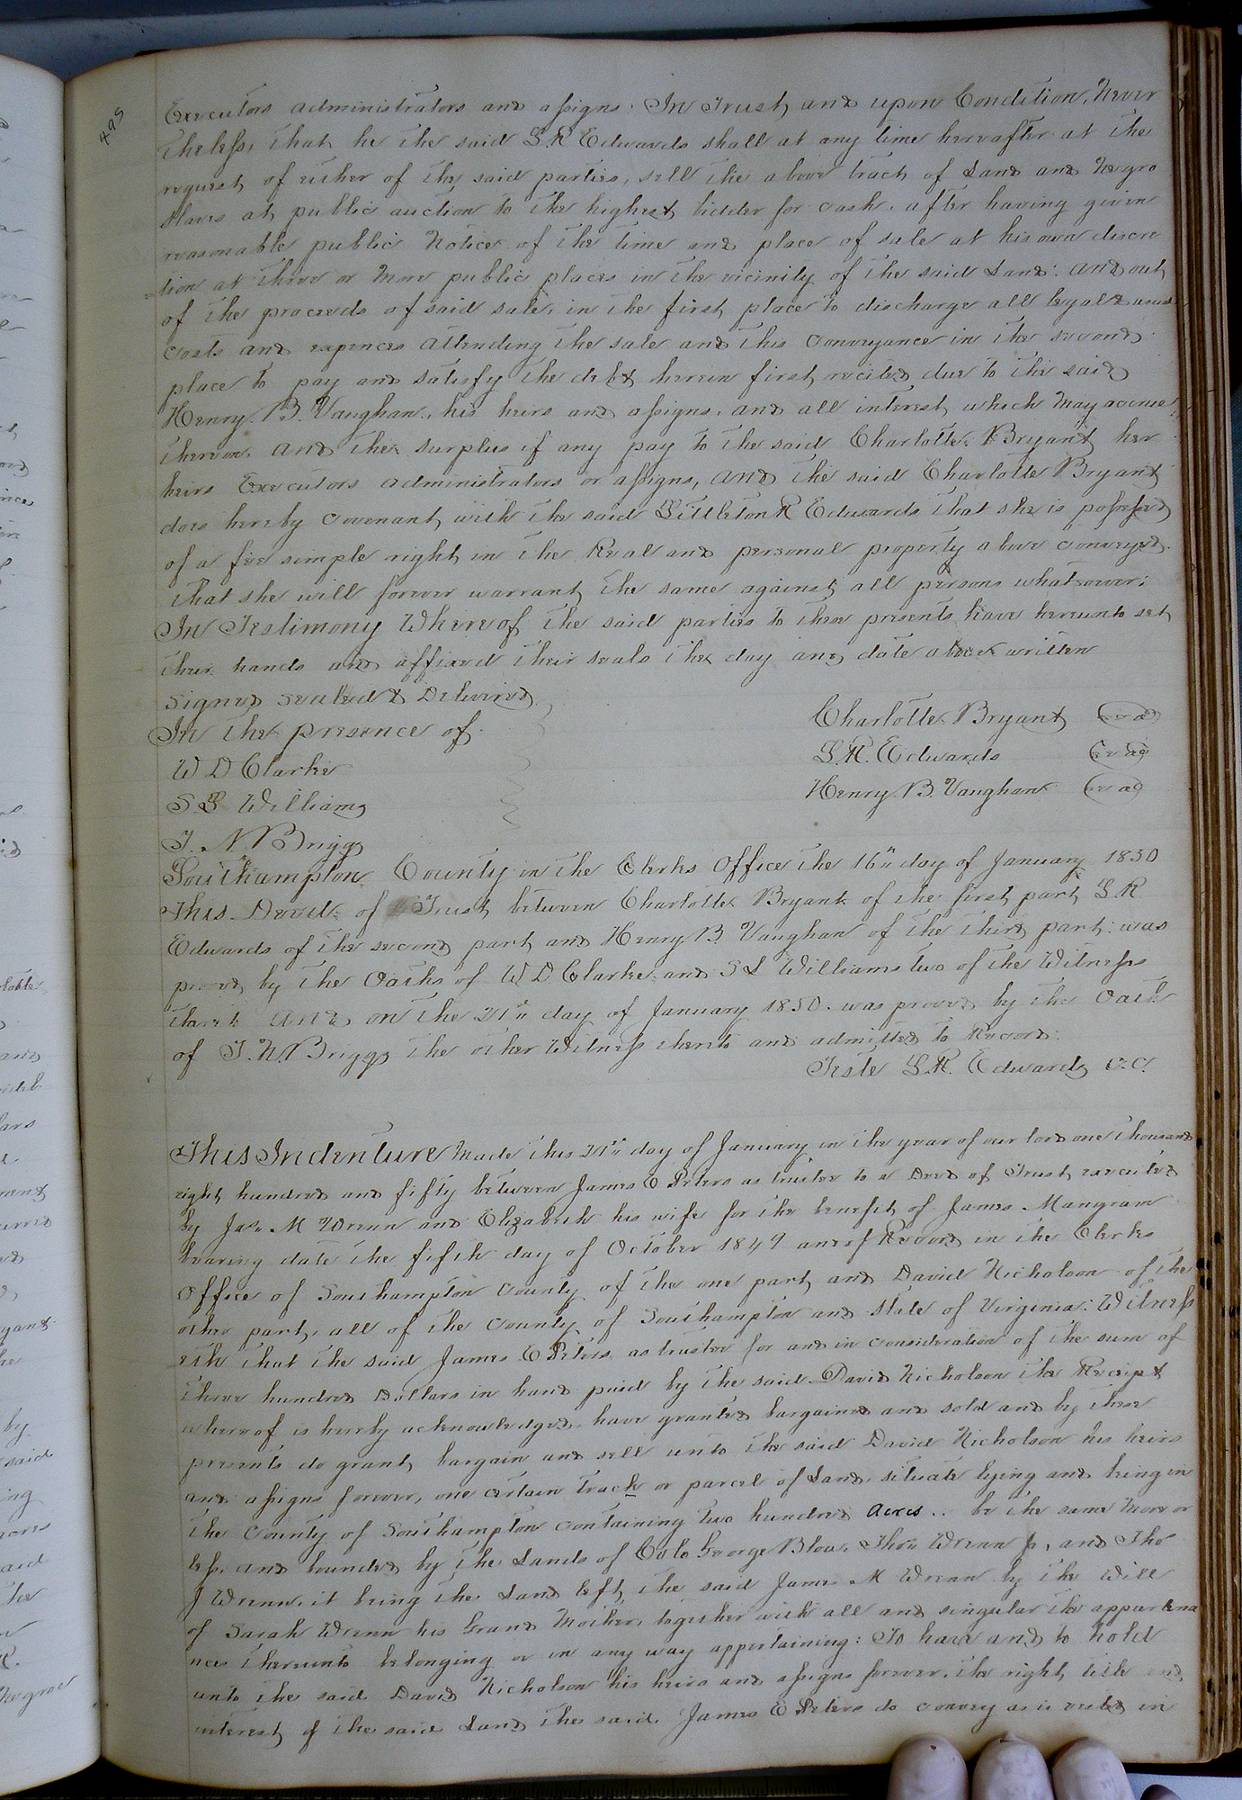 495
Executors administrators and assigns. In Trust, and upon Condition, Never
theless, that he the said L R Edwards shall at any time hereafter at the
request of either of the said parties, sell the above tract of Land and Negro
slaves at public auction to the highest bidder for cash, after having given
reasonable public Notice of the time and place of sale at his own discre
=tion at three or more public places in the vicinity of the said Land: and out
of the proceeds of said sale, in the first place to discharge all legal & usual
costs and expences attending the sale and this conveyance in the second
place to pay and satisfy the debt herein first recited due to the said
Henry B. Vaughan, his heirs and assigns, and all interest which may accrue
thereon. And the surplus if any pay to the said Charlotte Bryant her
heirs Executors administrators or assigns, and the said Charlotte Bryant
does hereby covenant with the said Littleton R Edwards that she is possessed
of a fee simple right in the Real and personal property above conveyed.
that she will forever warrant the same against all persons whatsoever;
In Testimony Whereof the said parties to these presents have hereunto set
their hands and affixed their seals the day and date above written
Signed sealed & Delivered
In the presence of
Charlotte Bryant (seal)
W D Clarke
L. R. Edwards (seal)
S L Williams
Henry B. Vaughan (seal)
T. N. Briggs
Southampton County in the Clerks Office the 16th day of January 1850
This Deed of Trust between Charlotte Bryant of the first part L R
Edwards of the second part and Henry B. Vaughan of the third part: was
proved by the Oaths of W D Clarke and S L Williams two of the Witness
thereto and on the 21st day of January 1850. was proved by the Oath
of T. N Briggs the other Witness thereto and admitted to Record.
Teste L. R. Edwards C.C.
This Indenture Made this 21st day of January in the year of our lord one thousand
eight hundred and fifty between James E Peters as trustee to a Deed of Trust executed
by Jas. M Wrenn and Elizabeth his wife for the benefit of James Mangram
bearing date the fifth day of October 1849 and of Record in the Clerks
Office of Southampton County of the one part, and David Nicholson of the
other part, all of the County of Southampton and state of Virginia: Witness
eth that the said James E Peters as trustee for and in consideration of the sum of
three hundred Dollars in hand paid by the said David Nicholson the Receipt
whereof is hereby acknowledged, have granted bargained and sold and by these
presents do grant, bargain and sell unto the said David Nicholson his heirs
and assigns forever, one certain track or parcel of Land, situate lying and being in
the County of Southampton containing two hundred acres .. be the same more or
less, and bounded by the Lands of Colo George Blow, Thos Wrenn Jr, and Tho
J Wrenn, it being the Land left, the said James M Wrenn by the Will
of Sarah Wrenn his Grand Mother, together with all and singular the appurtena
nces thereunto belonging or in any way appertaining: To have and to hold
unto the said David Nicholson his heirs and assigns forever. the right title and
interest of the said Land the said James E Peters do convey as is vested in